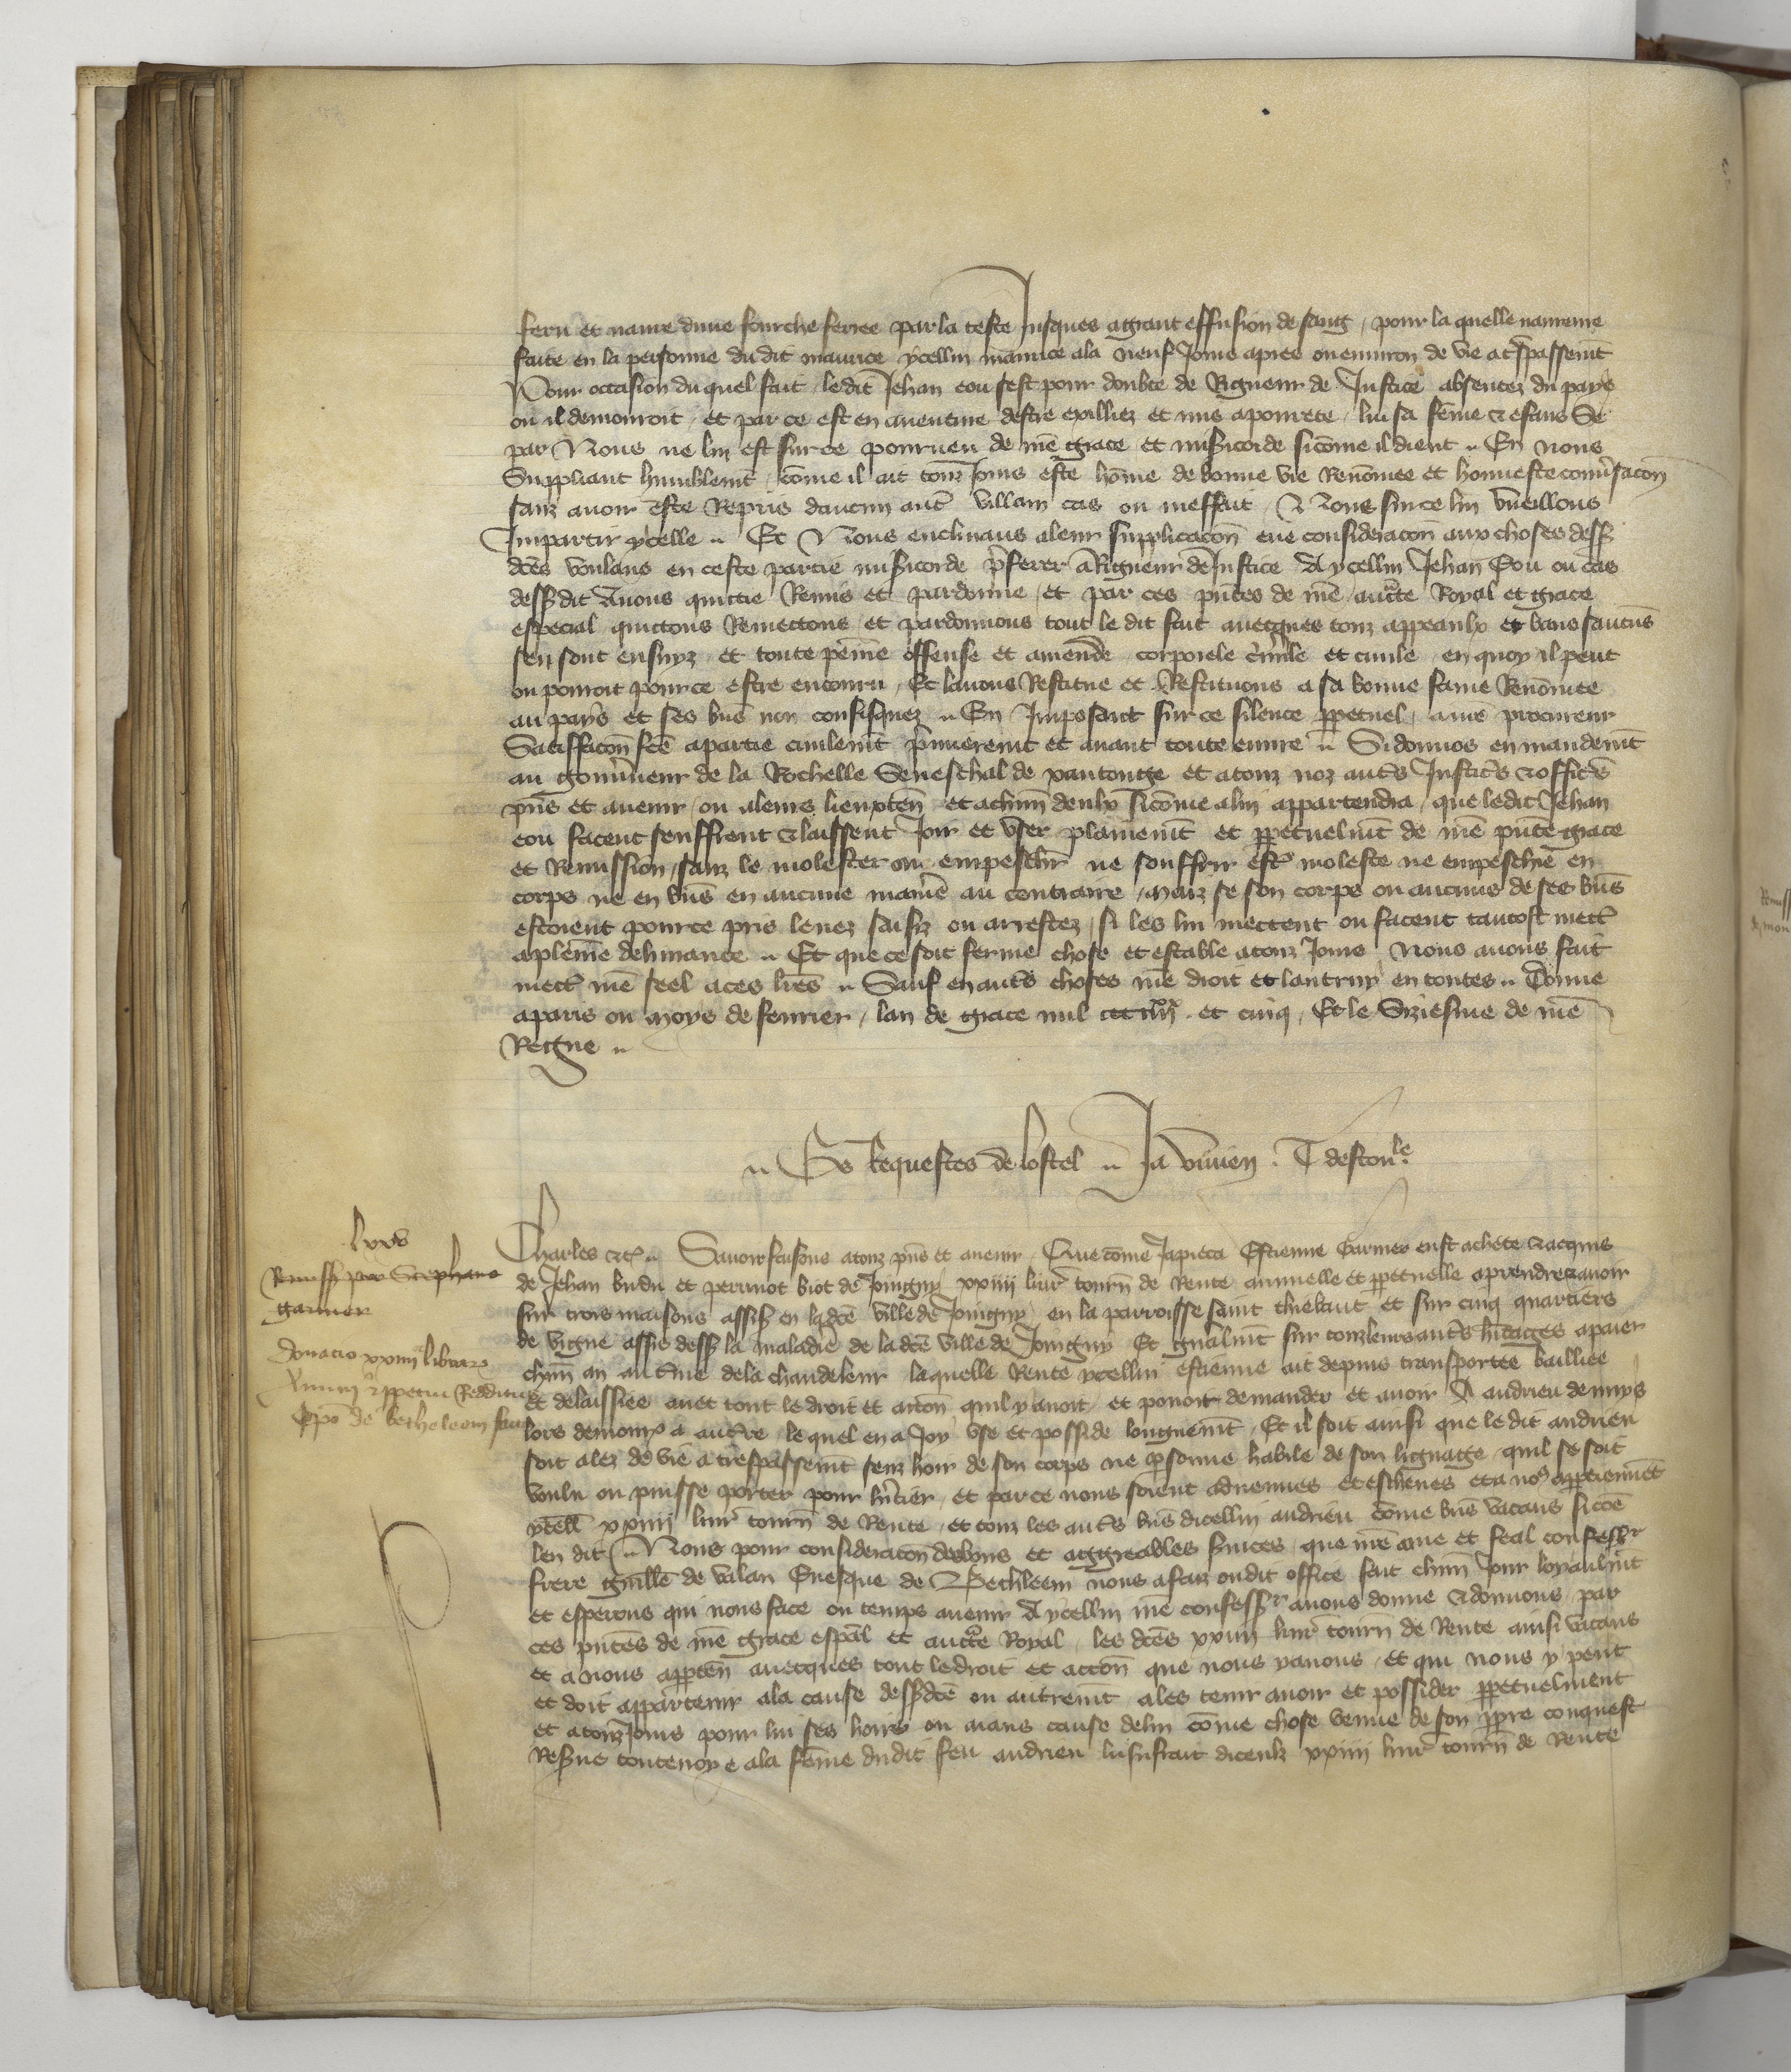 feru et naure dune fourche ferree par la teste Jusques a grant effusion de sang, pour la quelle naureure
faite en la personne du dit maurice ycellui maurice ala neuf Jours apres ou enuiron de vie a trespassemt
Pour occasion du quel fait, ledit Jehan cou sest pour doubte de Rigueur de Justice absentez du pays
ou il demouroit, et par ce est en auenture destre exilliez et mis a pourete, lui sa fēme & efans Se
par Nous ne lui est sur ce pourueu de nrē grace et misericorde sicōme il dient .. En nous
Suppliant humblemt, cōme il ait touz Jours este hōme de bonne vie Renōmee et honneste conuersacōn
sanz auoir este Repris daucun autre villain cas ou meffait, Nous sur ce lui vueillons
Impartir ycelle .. Et Nous enclinans a leur supplicacōn eue consideracōn aux choses dess
dcēs voulans en ceste partie misericorde pferer a Rigueur de Justice A ycellui Jehan Cou ou cas
dessdit Auons quittie Remis et pardonne, et par ces pntes de nrē aucte Royal et grace
especial, quictons Remectons et pardonnons tout le dit fait auecques touz appeaulx et bans saucus
sen sont ensuyz et toute peine offense et amende corporele criminele et ciuile en quoy il peut
ou pouroit pour ce estre encouru, Et lauons Restitue et Restituons a sa bonne fame Renōmee
au pays et ses bns non confisquez .. En Imposant sur ce silence ppetuel, a nrē procureur
Satiffacōn fcē a partie ciuilemt pmierement et auant toute euure .. Si donnos en mandemt
au gouuneur de la Rochelle Seneschal de xantonge et a touz noz autrs Justiciers & officiers
pns et auenir, ou a leurs lieuxten et a chūn deulx sicōme a lui appartendra, que ledit Jehan
cou facent seuffrent & laissent Joir et vser plainemt et ppetuelmt de nrē pnte grace
et Remission, sanz le molester ou empeschr ne souffrir estre moleste ne empeschie en
corps ne en bns en aucune maniere au contraire, maiz se son corps ou aucuns de ses bns
estoient pour ce pris leuez saisiz ou arrestez, si les lui mectent ou facent tantost mectr
a pleine deliurance .. Et que ce soit ferme chose et estable a touz Jours Nous auons fait
mectr nrē seel a ces lrēs .. Sauf en autrs choses nrē droit et lautruy en toutes .. Donne
a paris ou moys de feurier, lan de grace mil ccc iiiixx et cinq, Et le Siziesme de nrē
Regne ..
.. Es Requestes de lostel .. Ja viuien . T destouule.
lxvs
Remissio pro Stephano
garnier
Donacio xxiiii librarum
Annui & ppetui Redditus
Epō de bethleem facta
Charles &c .. Sauoir faisons a touz pns et auenir, Que cōme Ja pieca Estienne Garnier eust achete & acquis
de Jehan budu et perrinot biot de Joingny xxiiii liures tourn de Rente annuelle et ppetuelle a prendre & auoir
sur trois maisons assis en la dcē ville de Joingny en la parroisse saint thiebaut et sur cinq quartiers
de vigne assis dess la maladie de la dcē ville de Joingny Et gnalmt sur touz leurs autrs hitages a paier
chūn an au terme de la chandeleur laquelle Rente ycellui estienne ait depuis transportee bailliee
et delaissiee auec tout le droit et accōn quil y auoit, et pouoit demander et auoir A andrieu de muys
lors demourant a aucerre, lequel en a Joy vse et posside longuemt, Et il soit ainsi que le dit andrieu
soit alez de vie a trespassemt senz hoir de son corps ne psonne habile de son lignage, quil se soit
voulu ou puisse porter pour hitier, et par ce nous soient aduenues et escheues et a nos apptiennēt
ycell xxiiii liures tourn de Rente, et touz les autrs bns dicellui andrieu cōme bns vacans sicōe
len dit .. Nous pour consideracōn des bons et aggreables suices, que nrē ame et feal confesseur
frere guillē de valan Euesque de Bethleem nous a faiz oudit office fait chūn Jour loyaulmt
et esperons qui nous face ou temps auenir A ycellui nrē confesseur auons donne & donnons, par
ces pntes de nrē grace espāl et aucte Royal, les dcēs xxiiii liures tourn de Rente ainsi vacans
et a nous appten auecques tout le droit et accōn que nous y auons et qui nous y peut
et doit appartenir a la cause dessdcē ou autremt a les tenir auoir et possider ppetuelment
et a touz Jours pour lui ses hoirs ou aians cause de lui cōme chose venue de son ppre conquest
Resue toutesuoye a la fēme dudit feu andrieu lusufruit diceulx xxiiii liures tourn de Rente